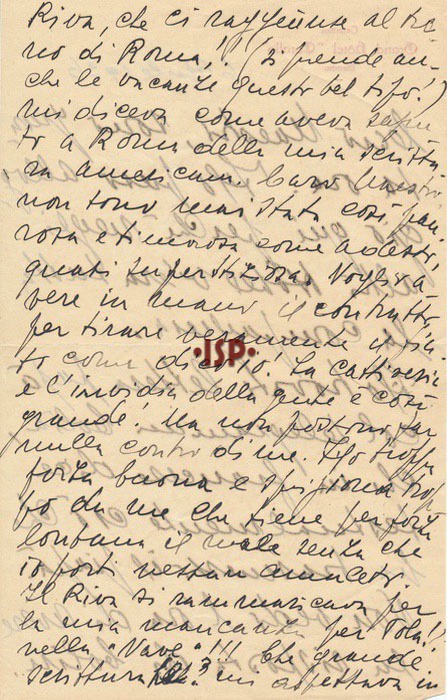 Riva, che ci raggiunse al tre
no di Roma,!! (si prende an-
che le vacanze questo bel tifo!)
mi diceva come aveva sapu
to a Roma della mia scrittu
ra americana. Caro Maestro
non sono mai stata così pau
rosa e timorosa come adesso,
quasi superstiziosa. Voglio a
vere in mano il contratto,
per tirare veramente il fia
to come dico io! La cattiveria
e l'invidia della gente è così
grande! Ma non possono far
nulla contro di me. Ho troppa
forza buona e
po da me che tiene per forza
lontano il male senza che
io porti nessun amuleto.
Il Riva si rammaricava per
la mia mancanza per Pola!!
nella "Nave"!!! Che grande
scrittura mi aspettava in
ISP